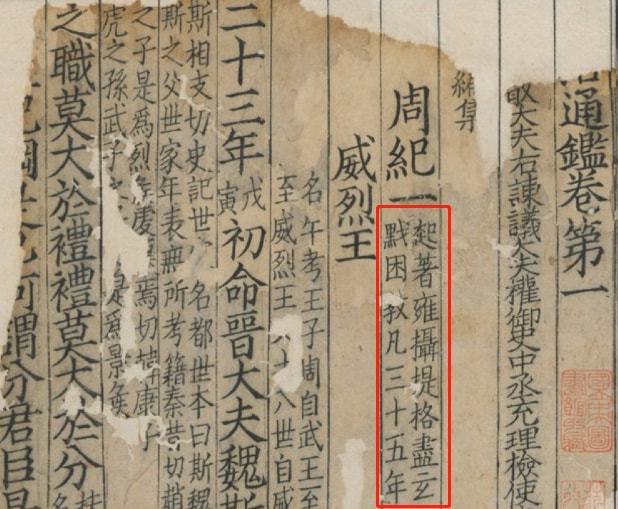 通鑑卷第一
大夫右諫議大夫權御史中丞充理檢使
編集
周紀一
起著雍攝提格盡玄
黓困敦凡三十五年
威烈王
名午考王子周自武王至
至威烈王八世自威
二十三年
戊
寅
初命晉大夫魏斯
斯相支切史記世名都世本曰斯魏
斯之父世家年表無所考籍秦昔切趙
之子是爲烈侯虔焉切康子
虎之孫武子之是爲景侯
之職莫大於禮禮莫大於分
紀綱是也何謂分君臣是